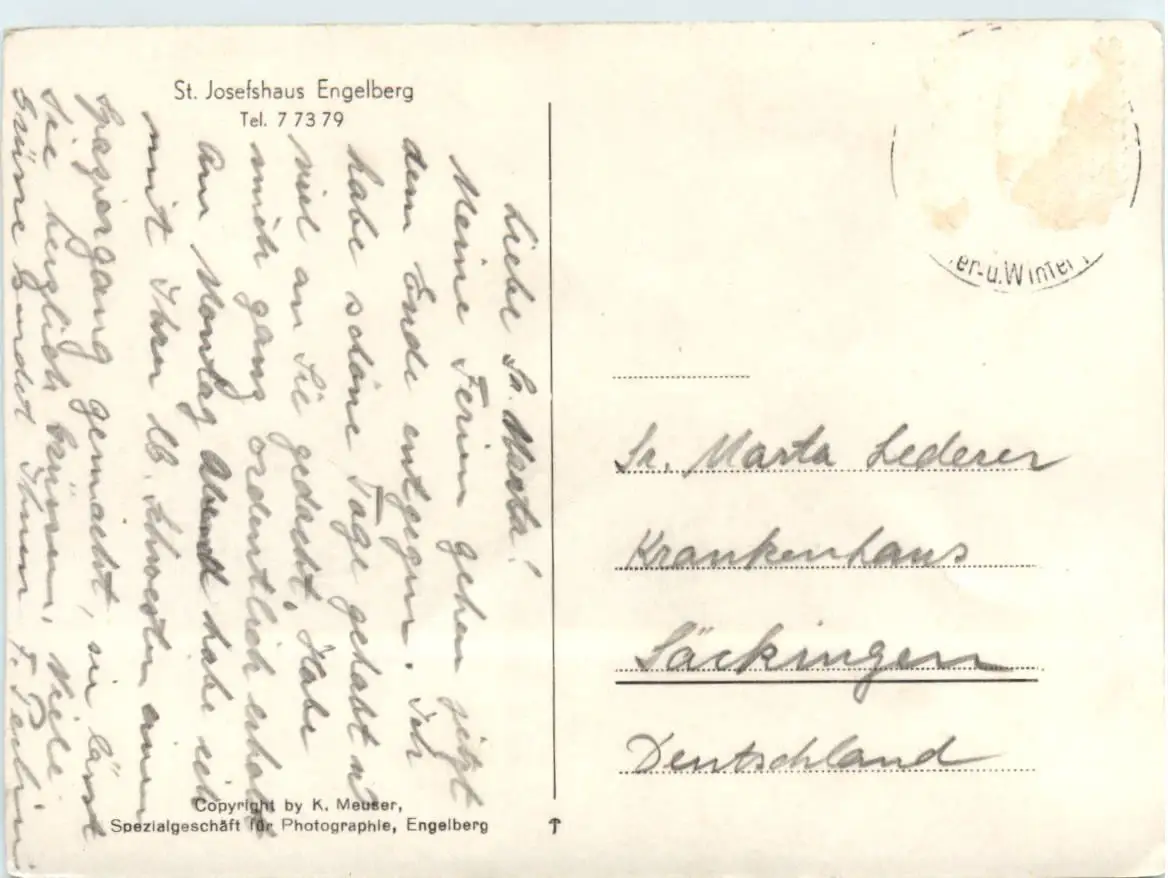 St. Josefshaus Engelberg
Tel. 7 73 79
Liebe Sr. Marta!
Meine Ferien gehen jetzt
dem Ende entgegen. Ich
habe schöne Tage gehabt u.
viel an Sie gedacht. Habe
mich ganz ordentlich erholt
Am Montag Abend habe ich
mit Ihrer lb. Schwester einen
Spaziergang gemacht, sie lässt
Sie herzlich grüssen. Viele
Grüsse sendet Ihnen
Copyright by K. Meuser,
Spezialgeschäft für Photographie, Engelberg
er- u. Winter
Sr. Marta Lederer
Krankenhaus
Säckingen
Deutschland